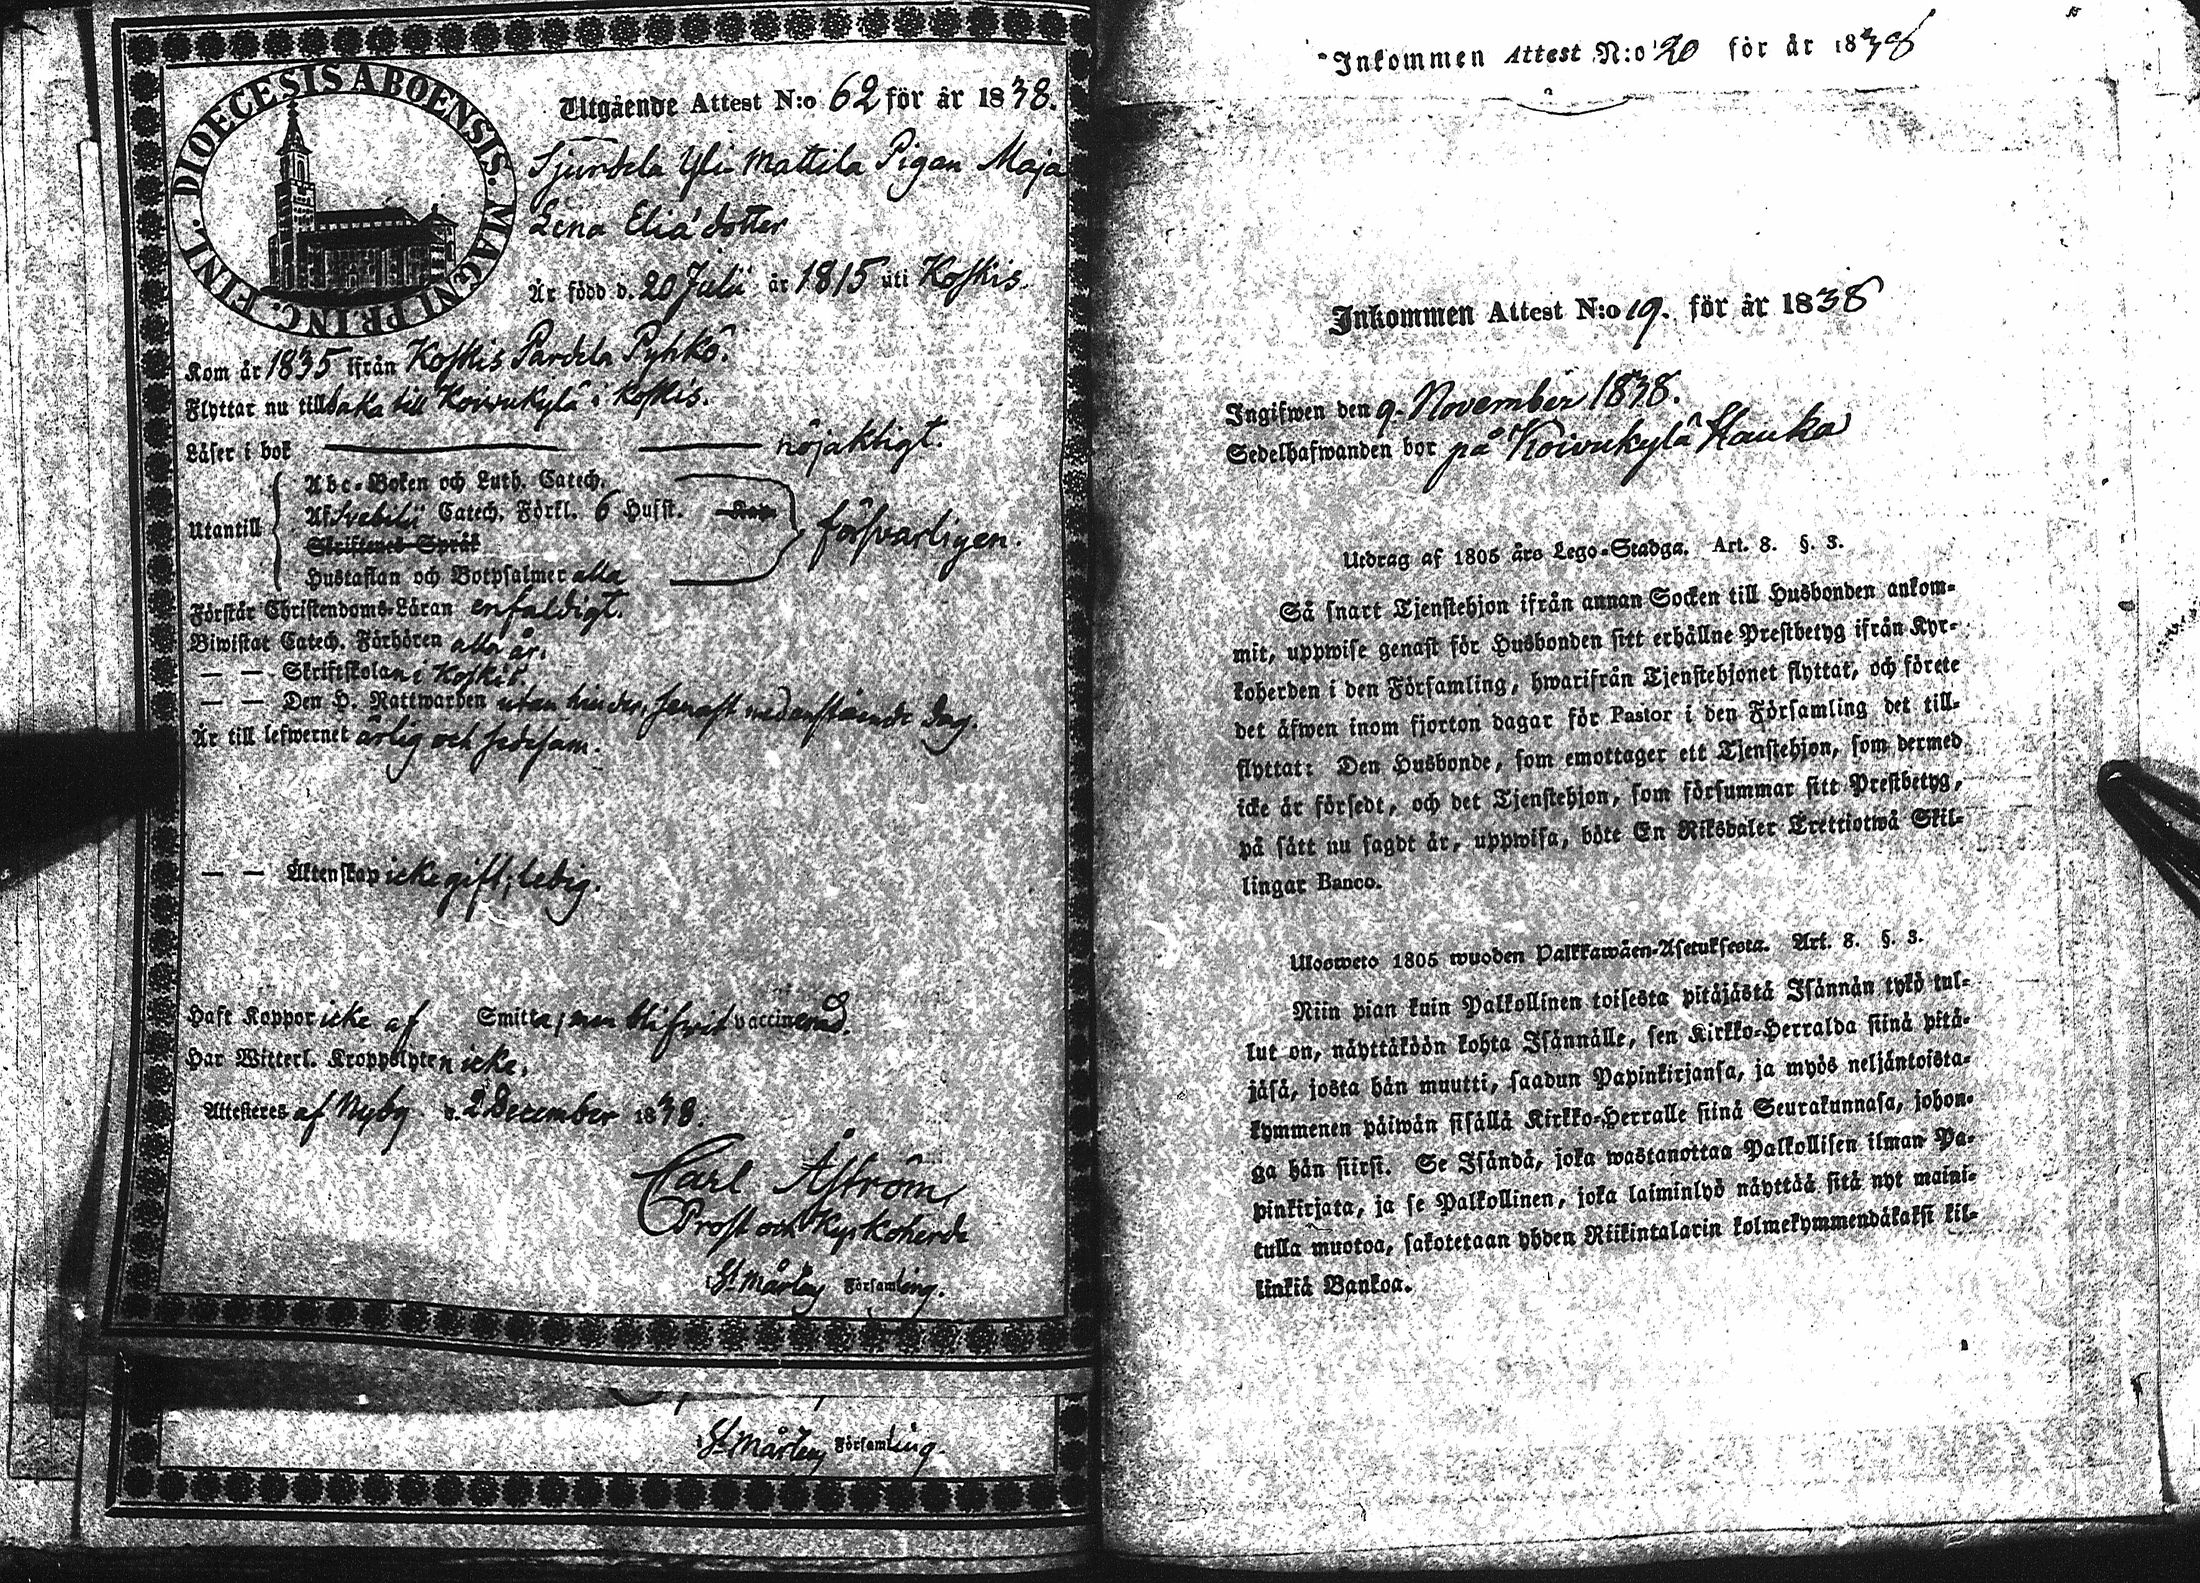 DIOECESIS ABOENSIS. MAGNI PRINC. FINL.
Utgående Attest N:o 62 för år 1838.
Sjurdela Yli Mattila Pigan Maja
Lena Elia's dotter
Är född d. 20 Julii år 1815 uti Koskis.
Kom år 1835 ifrån Koskis Pardela Pyhkö.
Flyttar nu tillbaka till Koivukylä i Koskis.
Läser i bok nöjaktigt.
Utantill
Abc-Boken och Luth. Catech.
Af Svebilii Catech. Förkl. 6 Hufst. Kap.
Skriftenes Språk
Hustaflan och Botpsalmer alla
försvarligen.
Förstår Christendoms-Läran enfaldigt.
Biwistat Catech. Förhören alla år.
— — Skriftskolan i Koskis.
— — Den H. Nattwarden utan hinder, senast nedanstående dag.
Är till lefwernet ärlig och fridsam.
— — Äktenskap icke gift; ledig.
Haft Koppor icke af Smitta, men blifvit vaccinerad.
Har Witterl. Kroppslyten icke.
Attesteres af Nyby d. 2 December 1838.
Carl Åström,
Prost och Kyrkoherde
St Mårtens Församling.
St Mårtens Församling.
Inkommen Attest N:o 20 för år 1838
Inkommen Attest N:o 19. för år 1838
Ingifwen den 9. November 1838.
Sedelhafwanden bor på Koivukylä Hauka
Utdrag af 1805 års Lego-Stadga. Art. 8. §. 3.
Så snart Tjenstehjon ifrån annan Socken till Husbonden ankom-
mit, uppwise genast för Husbonden sitt erhållne Prestbetyg ifrån Kyr-
koherden i den Församling, hwarifrån Tjenstehjonet flyttat, och förete
det äfwen inom fjorton dagar för Pastor i den Församling det till-
flyttat: Den Husbonde, som emottager ett Tjenstehjon, som dermed
icke är försedt, och det Tjenstehjon, som försummar sitt Prestbetyg,
på sätt nu sagdt är, uppwisa, böte En Riksdaler Trettiotwå Skil-
lingar Banco.
Ulosweto 1805 wuoden Palkkawäen-Asetuksesta. Art. 8. §. 3.
Niin pian kuin Palkollinen toisesta pitäjästä Isännän tykö tul-
lut on, näyttäköön kohta Isännälle, sen Kirkko-Herralda siinä pitä-
jäsä, josta hän muutti, saadun Papinkirjansa, ja myös neljäntoista-
kymmenen päiwän sisällä Kirkko-Herralle siinä Seurakunnasa, johon-
ga hän siirsi. Se Isändä, joka wastanottaa Palkollisen ilman Pa-
pinkirjata, ja se Palkollinen, joka laiminlyö näyttää sitä nyt maini-
tulla muotoa, sakotetaan yhden Riikintalarin kolmekymmendäkaksi kil-
linkiä Bankoa.